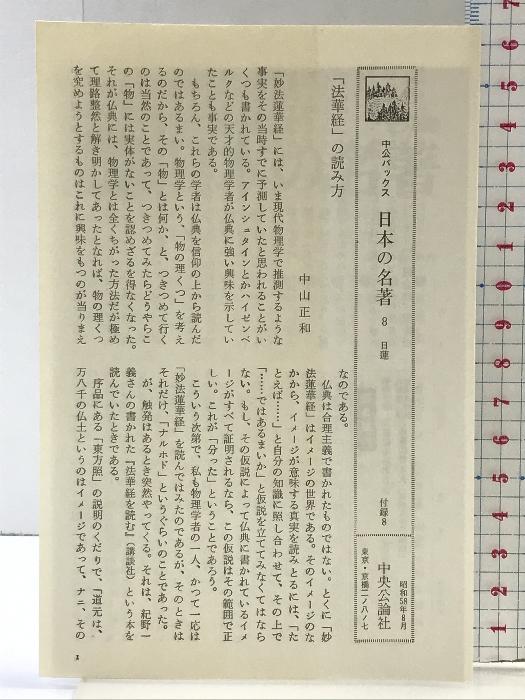 中公バックス 日本の名著 8 日蓮 付録8
昭和58年8月
中央公論社
東京・京橋二ノ八ノ七
「法華経」の読み方
中山正和
「妙法蓮華経」には、いま現代物理学で推測するような
事実をその当時すでに予測していたと思われることがい
くつも書かれている。アインシュタインとかハイゼンベ
ルクなどの天才的物理学者が仏典に強い興味を示してい
たことも事実である。
もちろん、これらの学者は仏典を信仰の上から読んだ
のではあるまい。物理学という、「物の理くつ」を考え
るのだから、その「物」とは何か、と、つきつめて行く
のは当然のことであって、つきつめてみたらどうやらこ
の「物」には実体がないことを認めざるを得なくなった。
それが仏典には、物理学とは全くちがった方法だが極め
て理路整然と解き明かしてあったとなれば、物の理くつ
を究めようとするものはこれに興味をもつのが当りまえ
なのである。
仏典は合理主義で書かれたものではない。とくに「妙
法蓮華経」はイメージの世界である。そのイメージのな
かから、イメージが意味する真実を読みとるには、「た
とえば……」と自分の知識に照し合わせて、その上で
「……ではあるまいか」と仮説を立ててみなくてはなら
ない。もし、その仮説によって仏典に書かれているイメ
ージがすべて証明されるなら、この仮説はその範囲で正
しい。これが「分った」ということであろう。
こういう次第で、私も物理学者の一人、かつて一応は
「妙法蓮華経」を読んではみたのであるが、そのときは
それだけ、「ナルホド」というぐらいのことであった。
が、触発はあるとき突然やってくる。それは、紀野一
義さんの書かれた『法華経を読む』(講談社)という本を
読んでいたときである。
序品にある「東方照」の説明のくだりで、「道元は、
万八千の仏土というのはイメージであって、ナニ、その
1